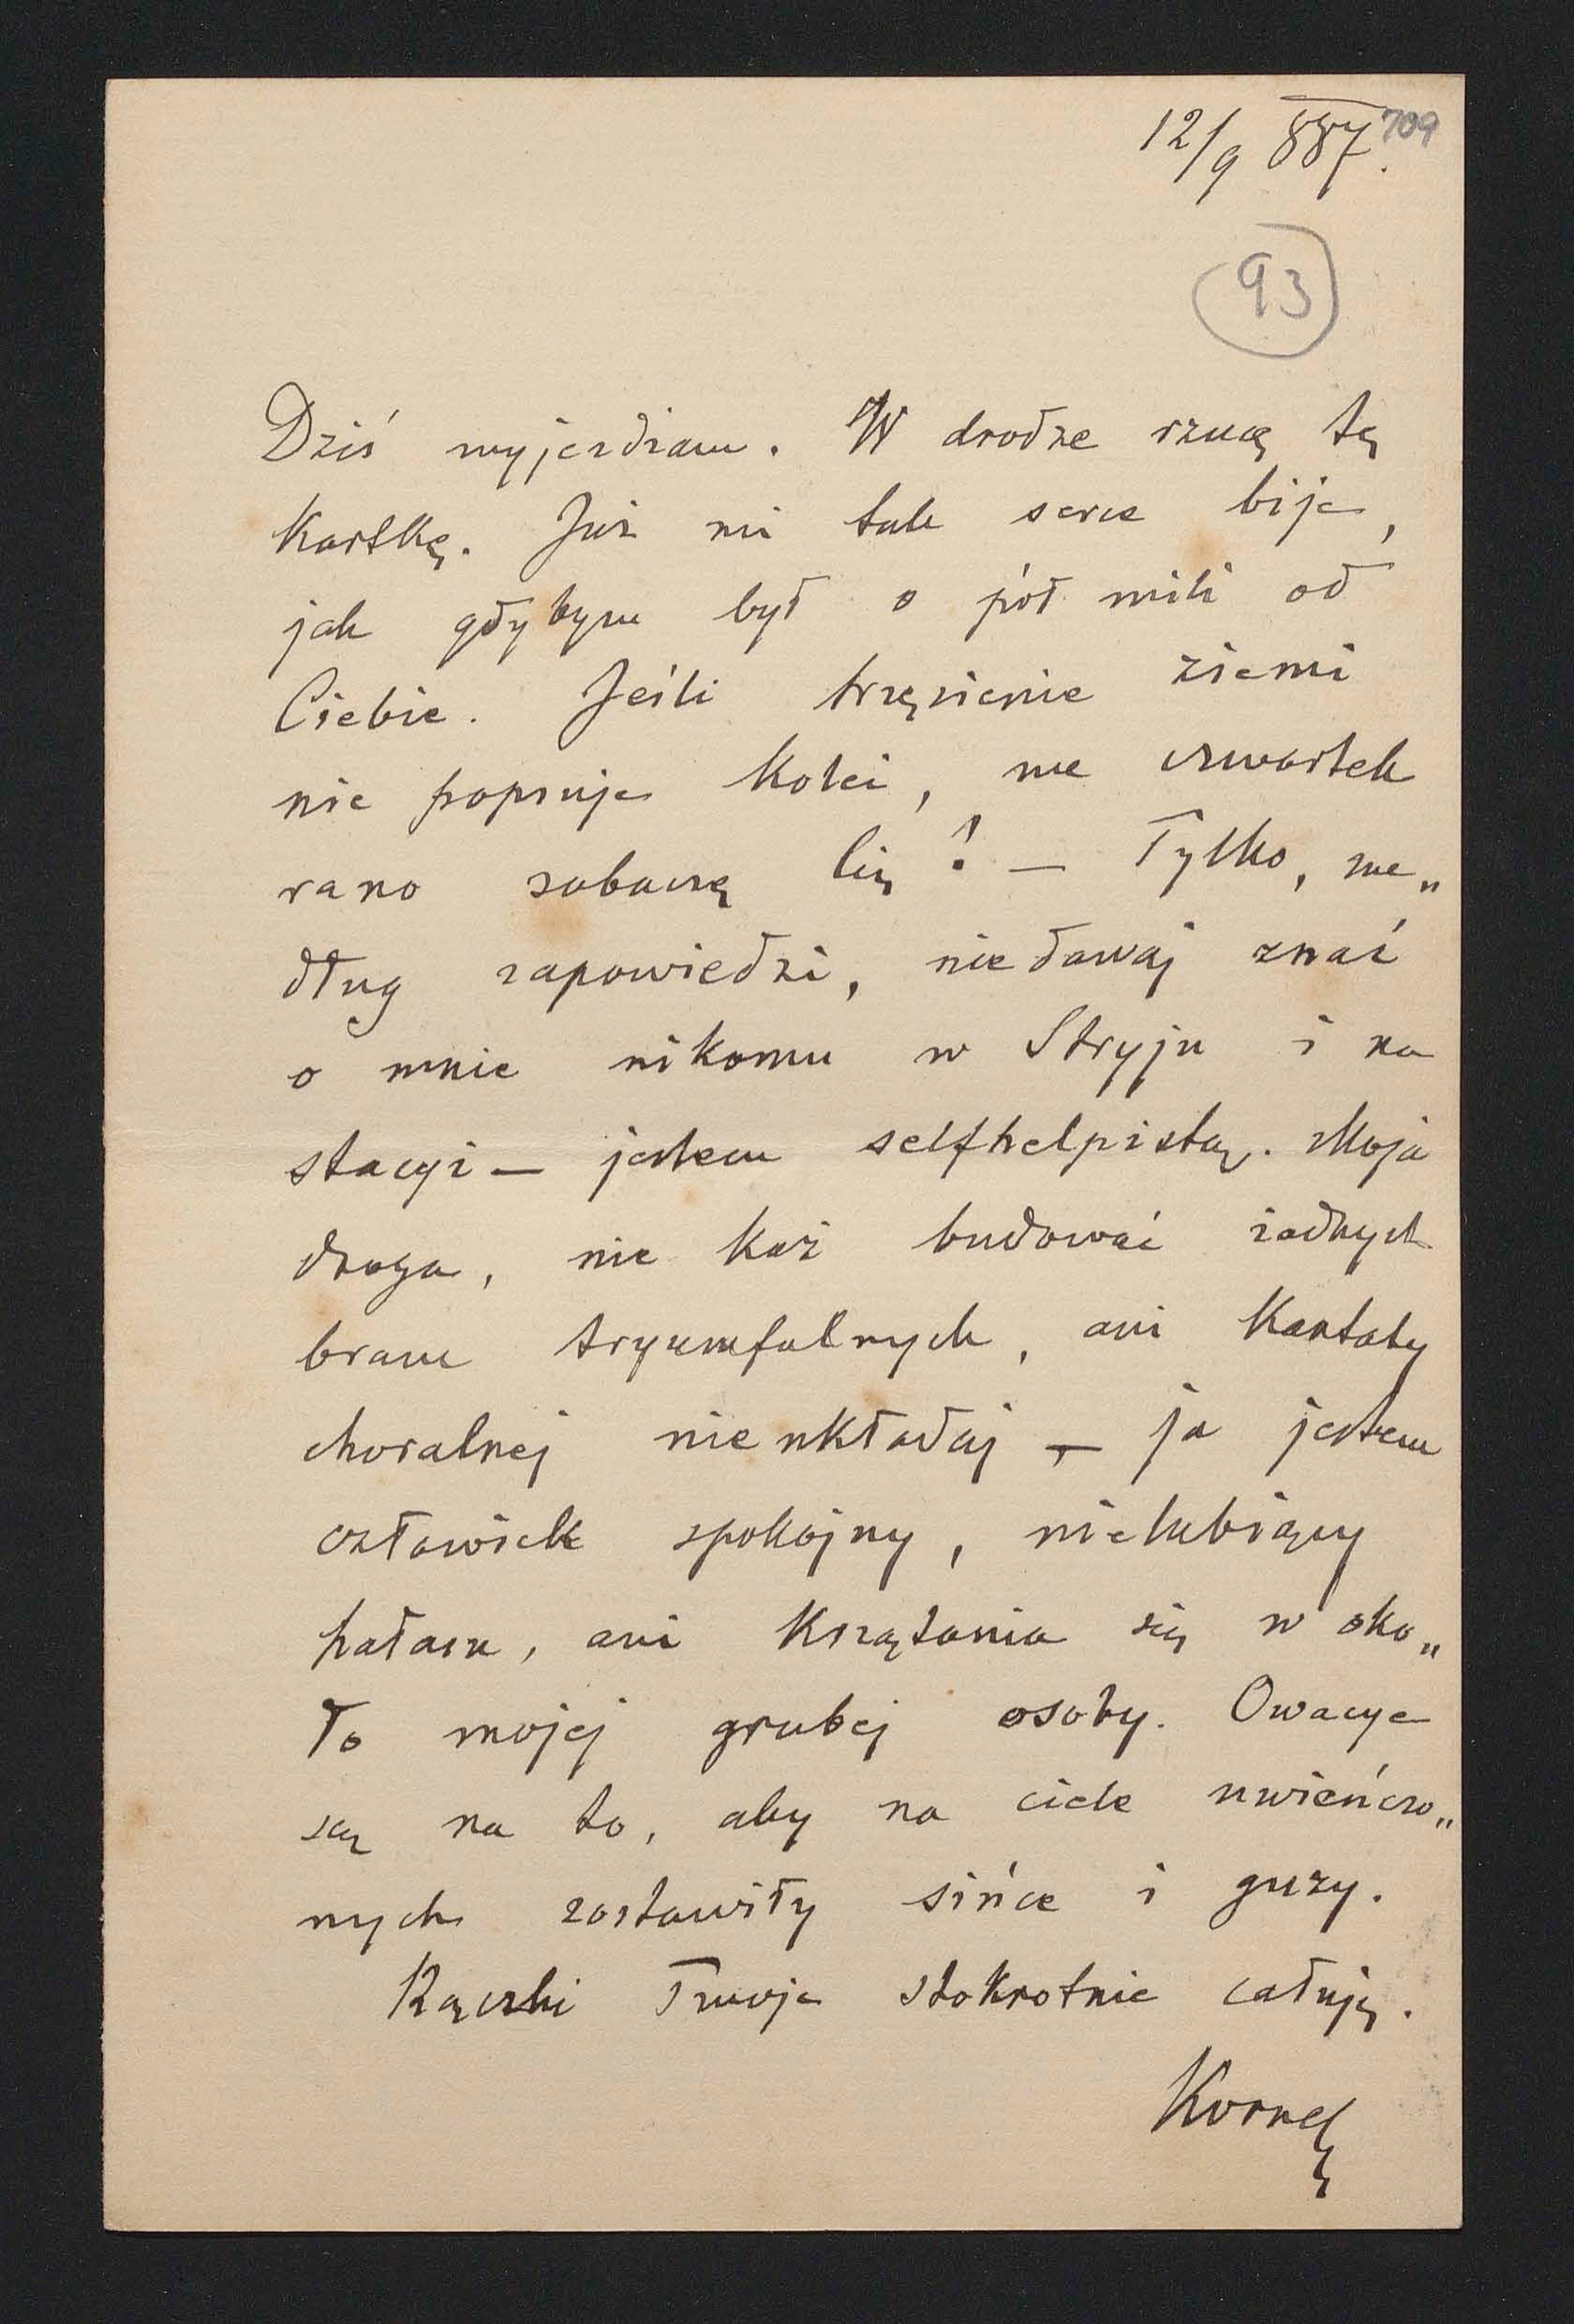 12/9 887.
709
93
Dziś wyjeżdżam. W drodze rzucę tę
Kartkę. Już mi tak serce bije,
jak gdybym był o pół mili od
Ciebie. Jeśli trzęsienie ziemi
nie popsuje Kolei, we czwartek
rano zobaczę Cię! — Tylko, we„
dług zapowiedzi, nie dawaj znać
o mnie nikomu w Stryju i na
stacyi — jestem selfhelpistą. Moja
droga, nie każ budować żadnych
bram tryumfalnych, ani Kantaty
choralnej nie układaj — ja jestem
człowiek spokojny, nielubiący
hałasu, ani Krzątania się w oko„
ło mojej grubej osoby. Owacye
są na to, aby na ciele uwieńczo„
nych zostawiły sińce i guzy.
Rączki Twoje stokrotnie całuję.
Kornel